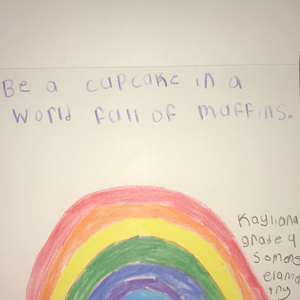 Be a cupcake in a
World full of muffins.
Kayliana
grade 4
Somers
elamen
try